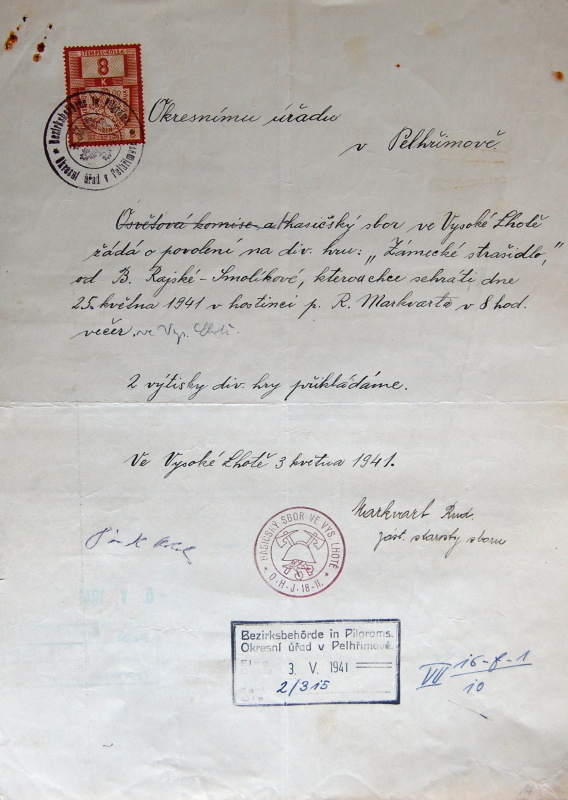 STEMPEL-KOLEK
8
K
Bezirksbehörde in Pilgrams
Okresní úřad v Pelhřimově
Okresnímu úřadu
v Pelhřimově.
Osvětová komise a hasičský sbor ve Vysoké Lhotě
žádá o povolení na div. hru: „Zámecké strašidlo,"
od B. Rajské-Smolíkové, kterou chce sehráti dne
25. května 1941 v hostinci p. R. Markvarta v 8 hod.
večer. ve Vys. Lhotě.
2 výtisky div. hry přikládáme.
Ve Vysoké Lhotě 3 května 1941.
Markvart Rud.
zást. starosty sboru
HASIČSKÝ SBOR VE VYS. LHOTĚ
O-H-J-18-II.
Bezirksbehörde in Pilgrams.
Okresní úřad v Pelhřimově.
3. V. 1941
2/315
VII 16-f-1
10